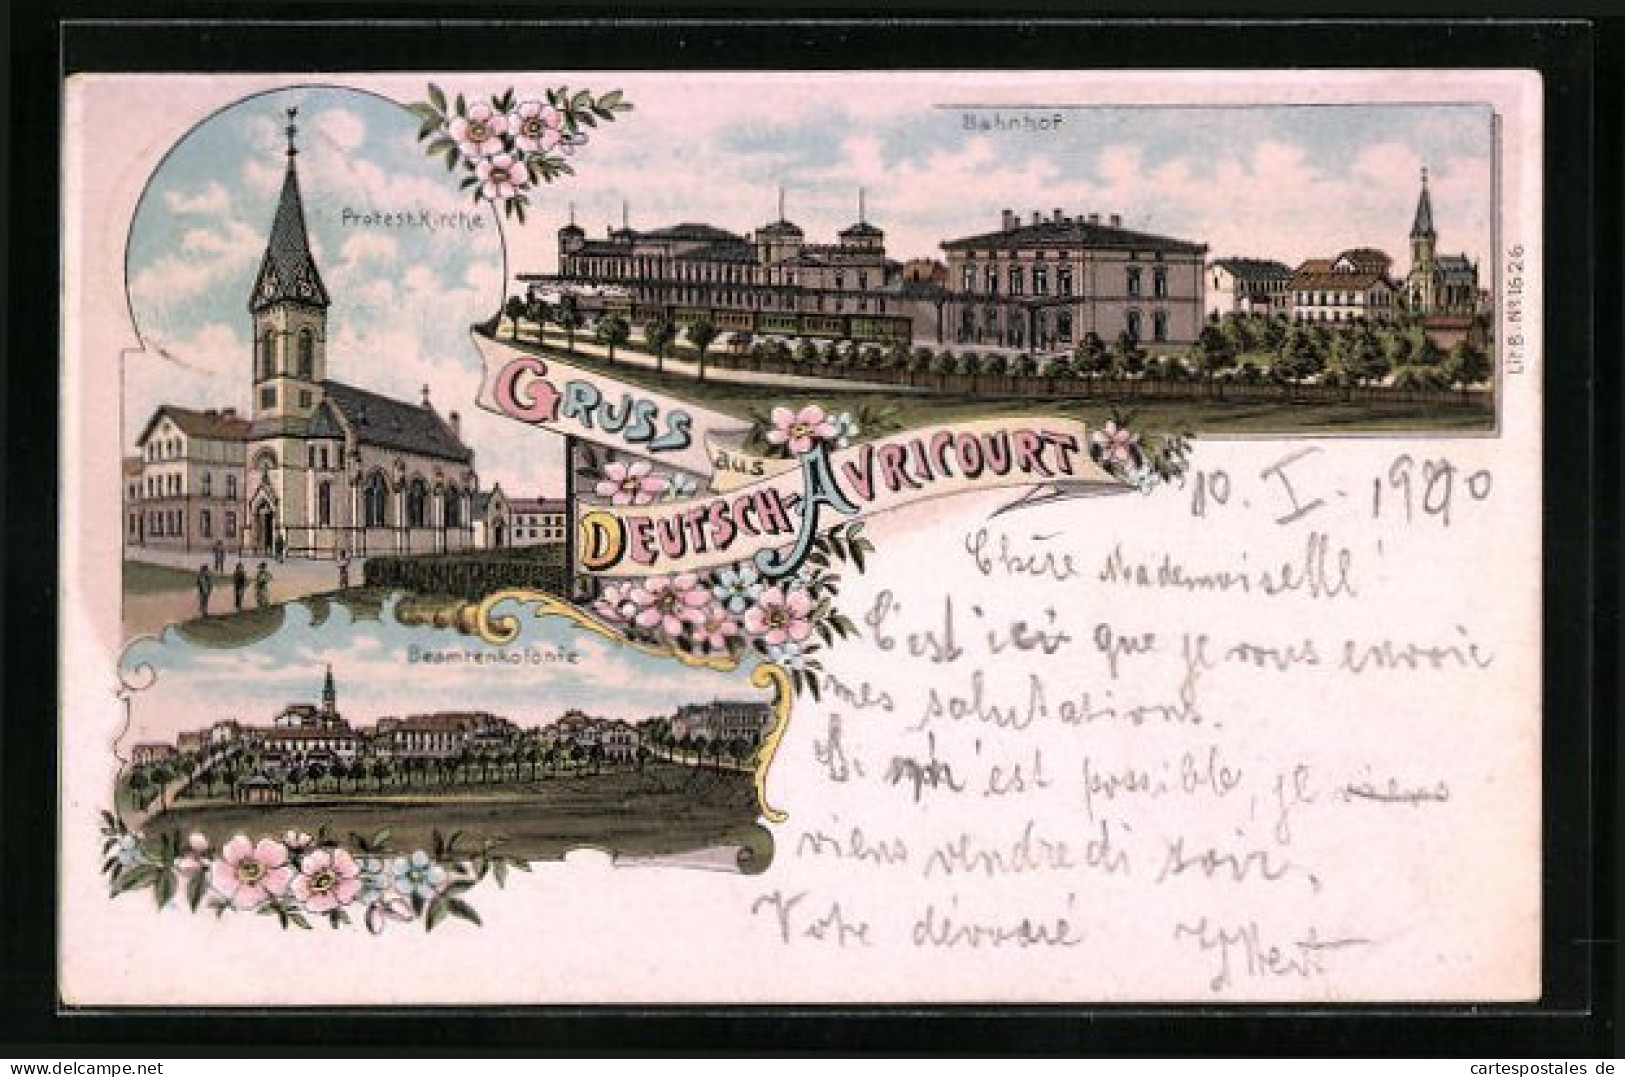 Protest. Kirche
Bahnhof
Lit. B. No 1626
GRUSS
aus
DEUTSCH-AVRICOURT
Beamtenkolonie
10. I. 1900
Chère Mademoiselle!
C'est ici que je vous envoie
mes salutations.
Si m'est possible, je viens
viens vendredi soir.
Votre dévoué
cartespostales de